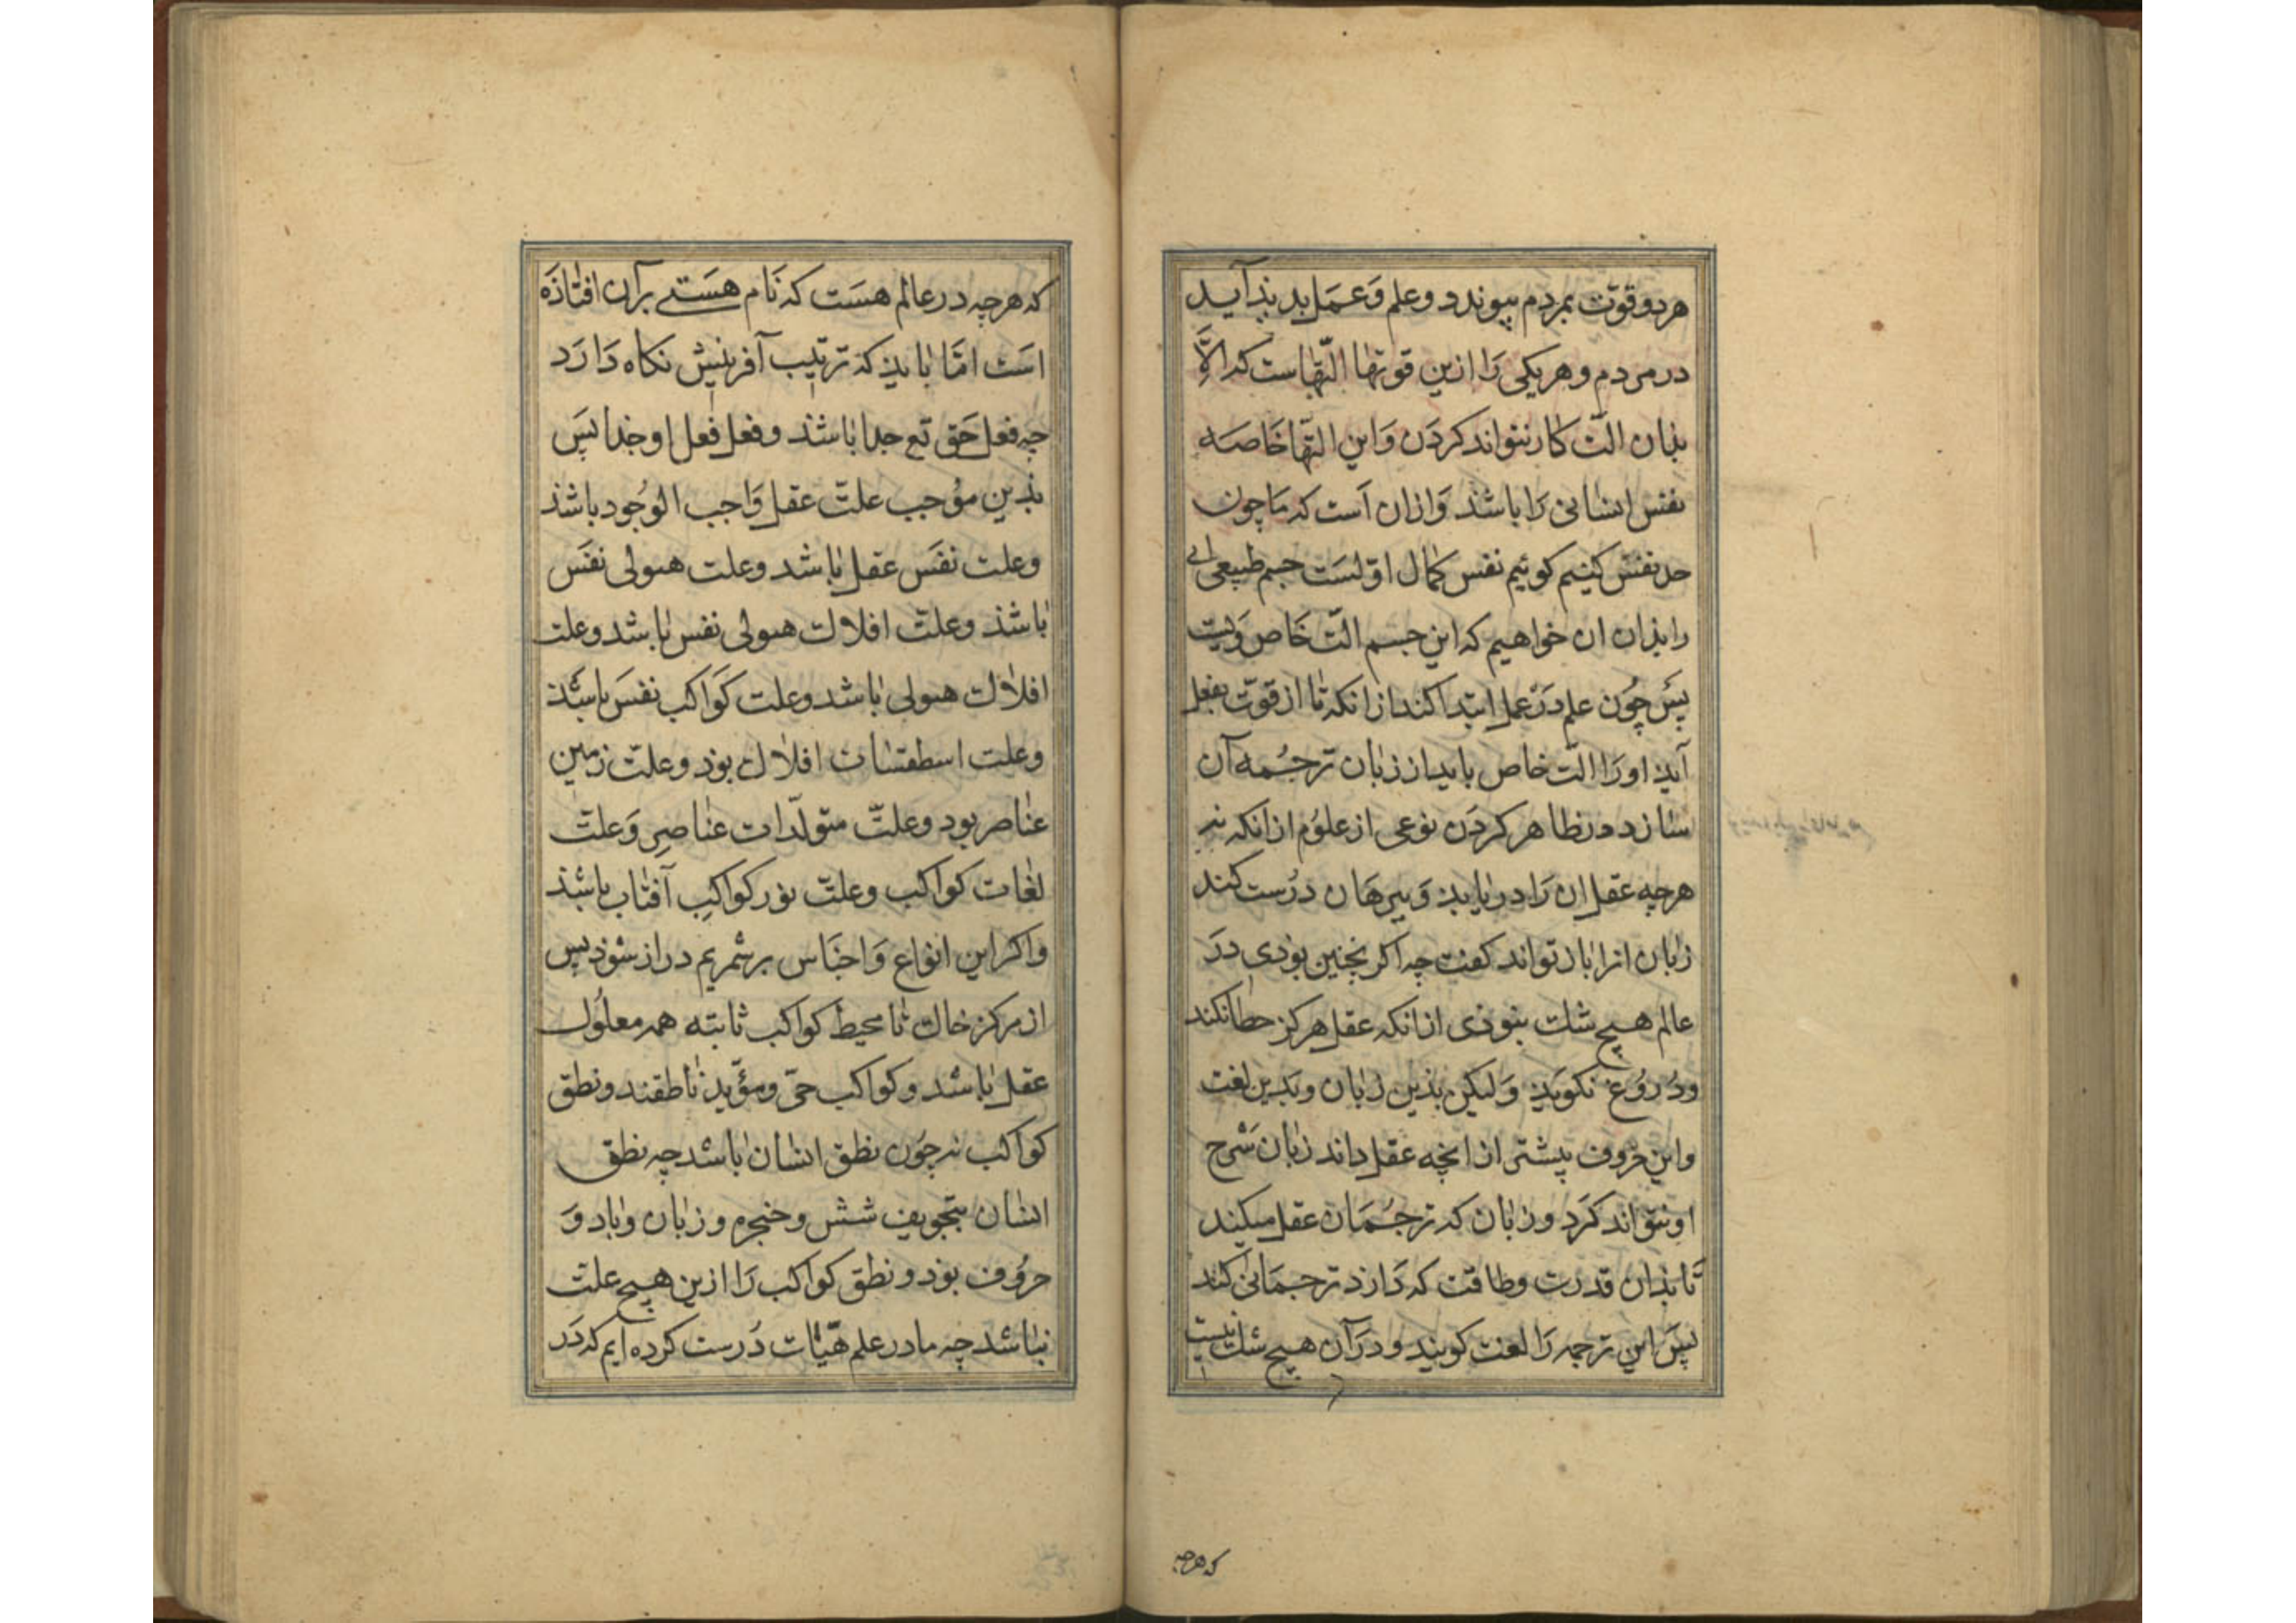 هر دو قوّت بمردم پیوندد و علم وَ عمَل بدیذ آید
در مردم و هر یکی رَا ازین قوتها التّهاست که الاَّ
بذان التّ کار نتواند کردَن وَ این التّها خَاصه
نفس انسانی رَا باشذ وَازان اَست که مَا چون
حد نفس کنیم کوئیم نفس کمال اوّلسَت جسم طبیعی الی
را بذان ان خواهیم که این جسم التّ خَاص وَیست
پسَ چوُن علم دَر عمل ابتدا کند از انکه تا از قوّت بفعل
آیذ او رَا التّ خاص باید از زبان ترجُمه آن
سازد در ظاهر کردَن نوعی از علوُم از انکه نه
هرچه عقل ان رَا دریابذ وَ ببرهَان درُست کند
زبان انرا باز تواند کفت چه اکر بچنین بوذی درَ
عالم هیچ شک نبوذی از انکه عقل هرکز خطا نکند
ودُروُغ نکویذ وَلیکن بذین زبان و بدین لغت
و این حرُوف پیشتر از انچه عقل داند زبان شَرح
او نتواند کرَد و زبان که ترجُمَان عقل میکند
تَا بذان قدرت و طاقت که دَارد ترجمَانی کند
پسَ این ترجمه رَا لغت کویند و درَ آن هیچ شک نیست
که هرچه
که هرچه در عالم هسَت که نَام هسَتے برآن افتاذَه
است امّا بایذ که ترتیب آفرینش نکاه دَارَد
چه فعل حَق تع جدا باشذ و فعل فعل او جذا پسَ
بذین موُجب علتّ عقل وَاجب الوجُود باشذ
وعلت نفَس عقل باشد وعلت هیولی نفَس
باشذ وعلتّ افلاک هیولی نفس باشد وعلت
افلاک هیولی باشد وعلت کوَاکب نفسَ باشذ
وعلت اسطقسات افلاک بوذ وعلتّ زمین
عناصر بود وعلتّ متولّدات عناصر وَعلتّ
لغات کواکب وعلتّ نور کواکب آفتاب باشذ
واکر این انوَاع وَ اجنَاس برشمریم دراز شوذ پس
از مرکز خاک تا محیط کواکب ثابته همه معلوُل
عقل باشد و کواکب حیّ ومؤیّد ناطقند ونطق
کواکب نه چوُن نطق انسان باشد چه نطق
انسان بتجویف شش و حنجره و زبان و باد وَ
حروُف بوذ و نطق کواکب رَا ازین هیچ علت
نباشد چه ما در علم هیّات دُرست کرده ایم که دَر